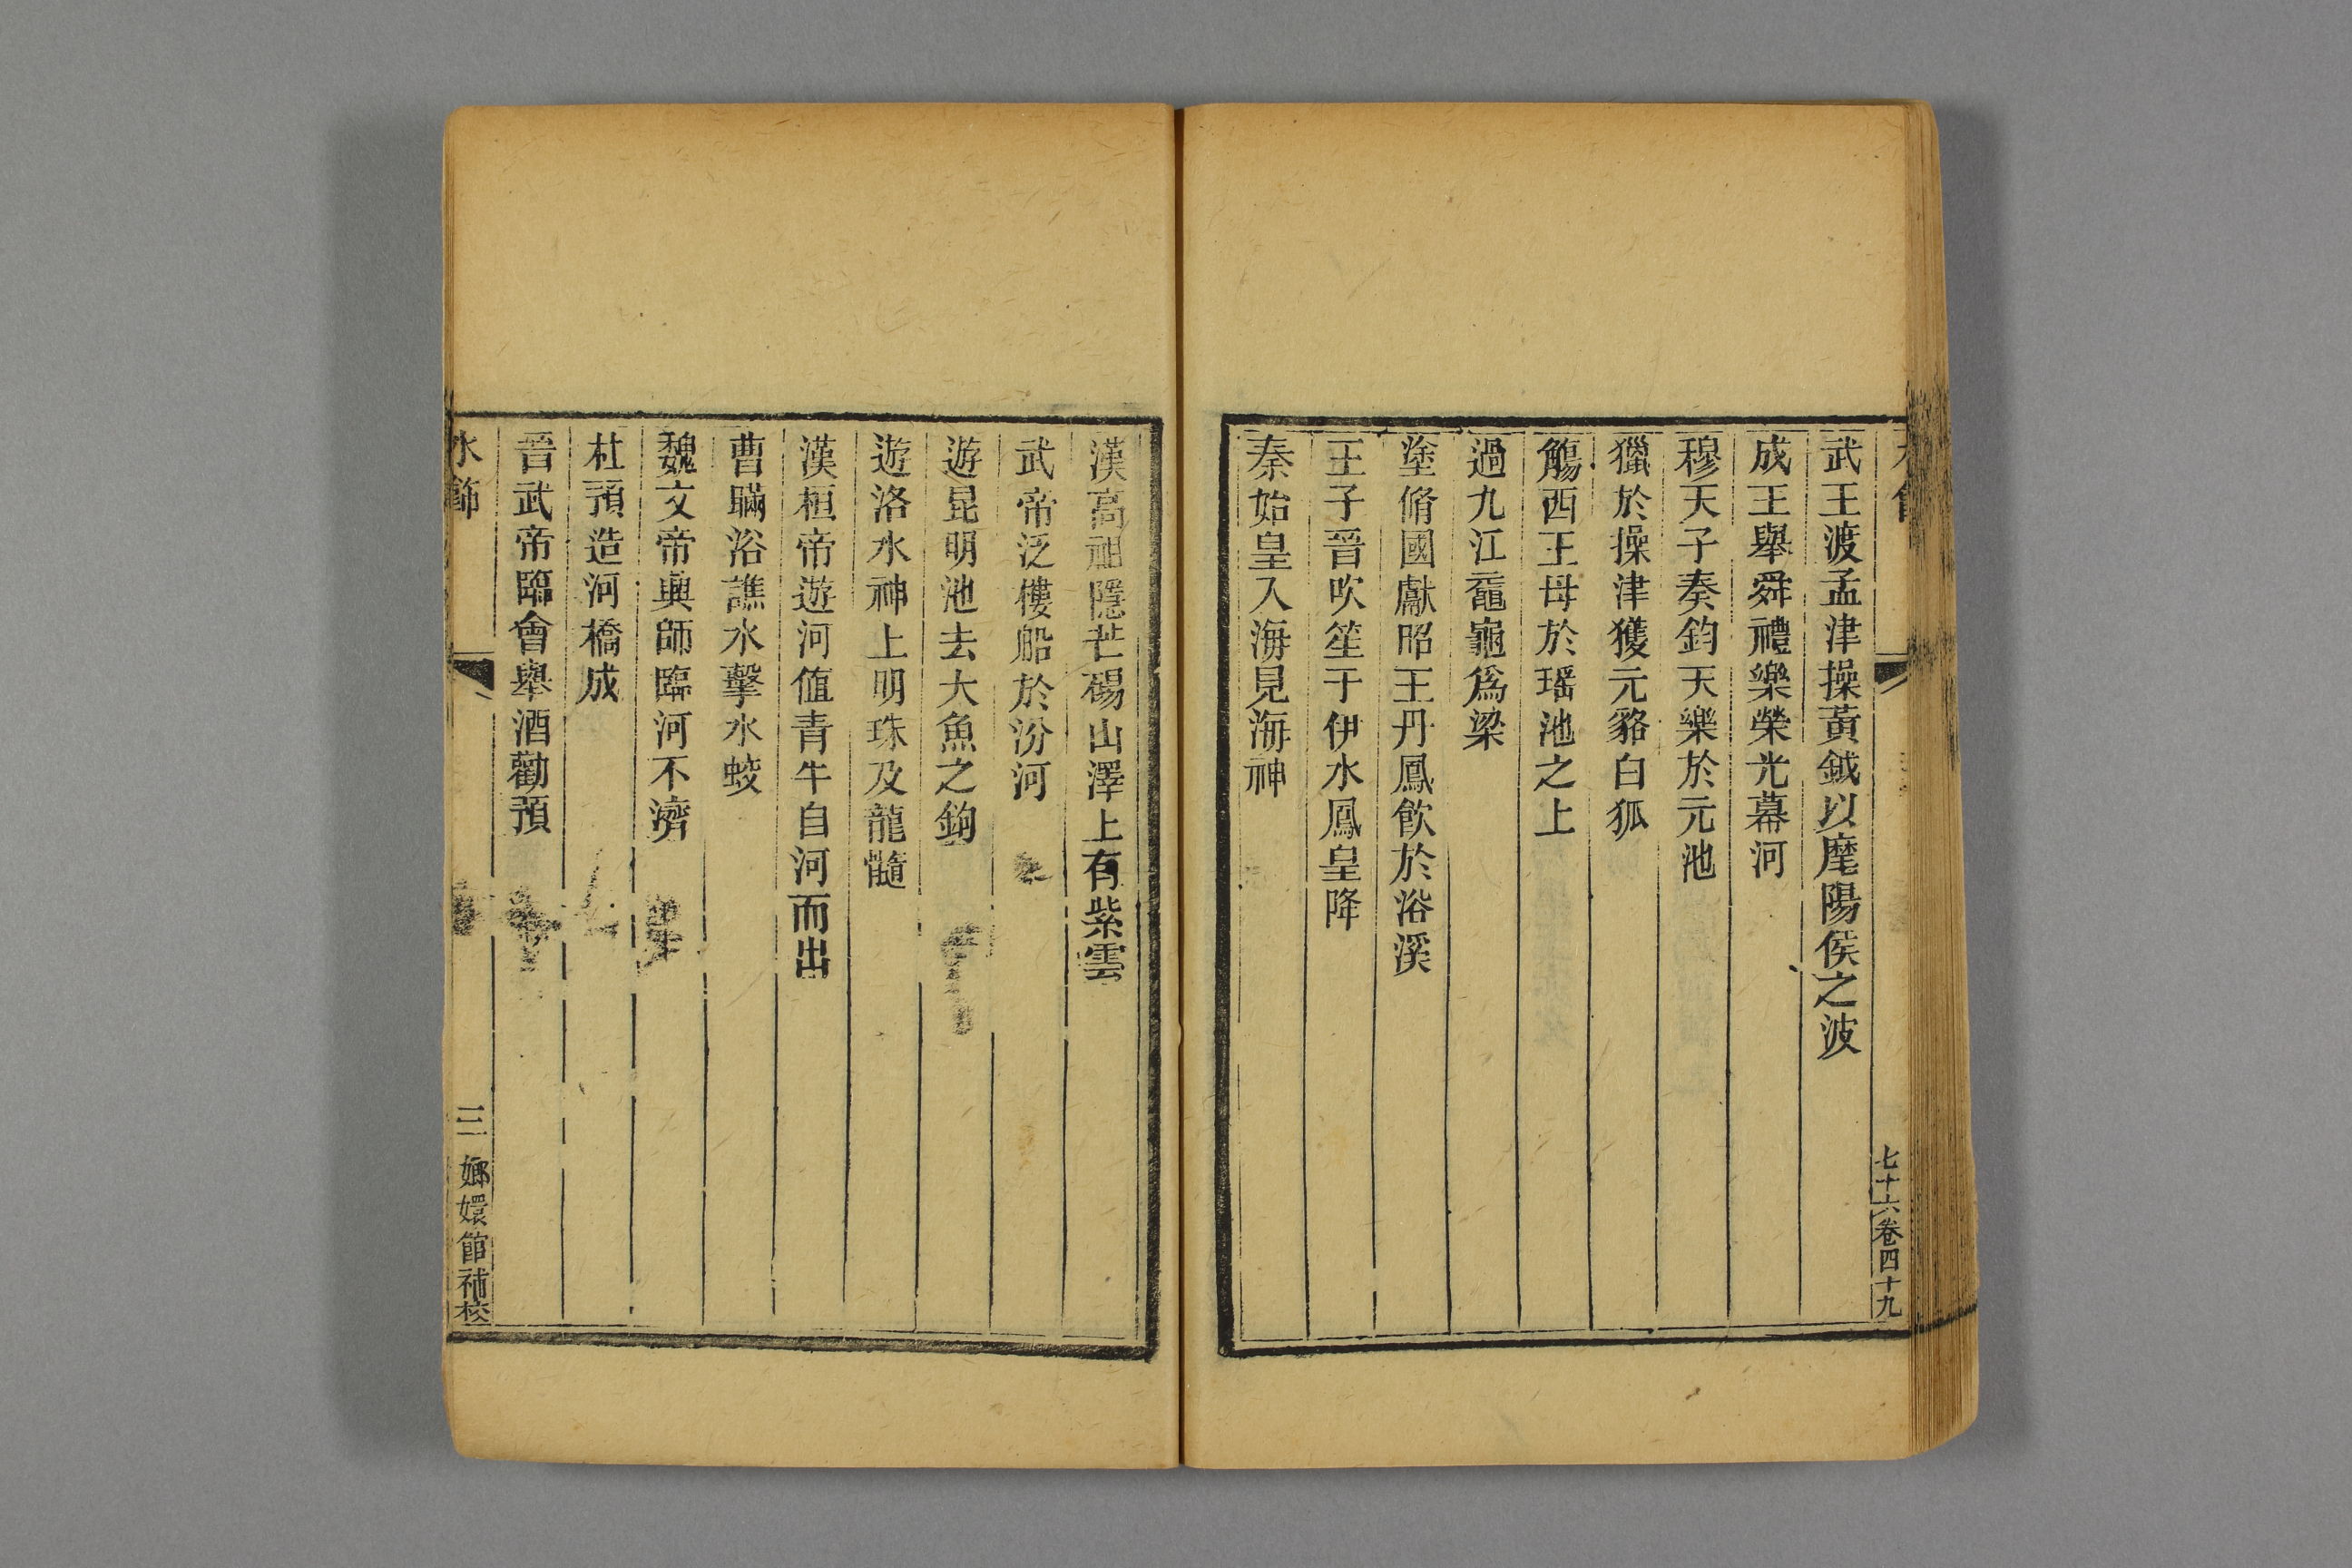 七十六卷四十九
武王渡孟津操黃鉞以麾陽侯之波
成王舉舜禮樂榮光幕河
穆天子奏鈞天樂於元池
獵於操津獲元貉白狐
觴西王母於瑤池之上
過九江黿龜爲梁
塗脩國獻昭王丹鳳飲於浴溪
王子晉吹笙于伊水鳳皇降
秦始皇入海見海神
漢高祖隱芒碭山澤上有紫雲
武帝泛樓船於汾河
遊昆明池去大魚之鉤
遊洛水神上明珠及龍髓
漢桓帝遊河値青牛自河而出
曹瞞浴譙水擊水蛟
魏文帝興師臨河不濟
杜預造河橋成
晉武帝臨會舉酒勸預
水飾
三
嫏嬛館補校